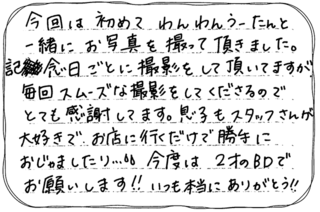 今回は 初めて わんわんうーたんと
一緒に お写真を 撮って 頂きました。
記念日ごとに 撮影を して 頂いてますが
毎回スムーズな撮影をしてくださるので
とても感謝してます。息子もスタッフさんが
大好きで お店に行くだけで勝手に
おじゃましたり… 今度は 2才のBDで
お願いします!! いつも本当に ありがとう!!